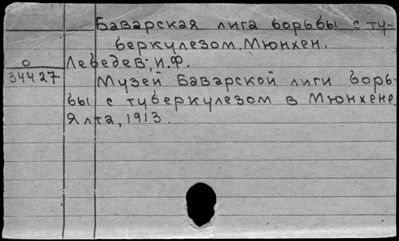 Баварская лига борьбы с ту-
беркулезом. Мюнхен.
0
34427
Лебедев, И.Ф.
Музей Баварской лиги борь-
бы с туберкулезом в Мюнхене
Ялта, 1913.